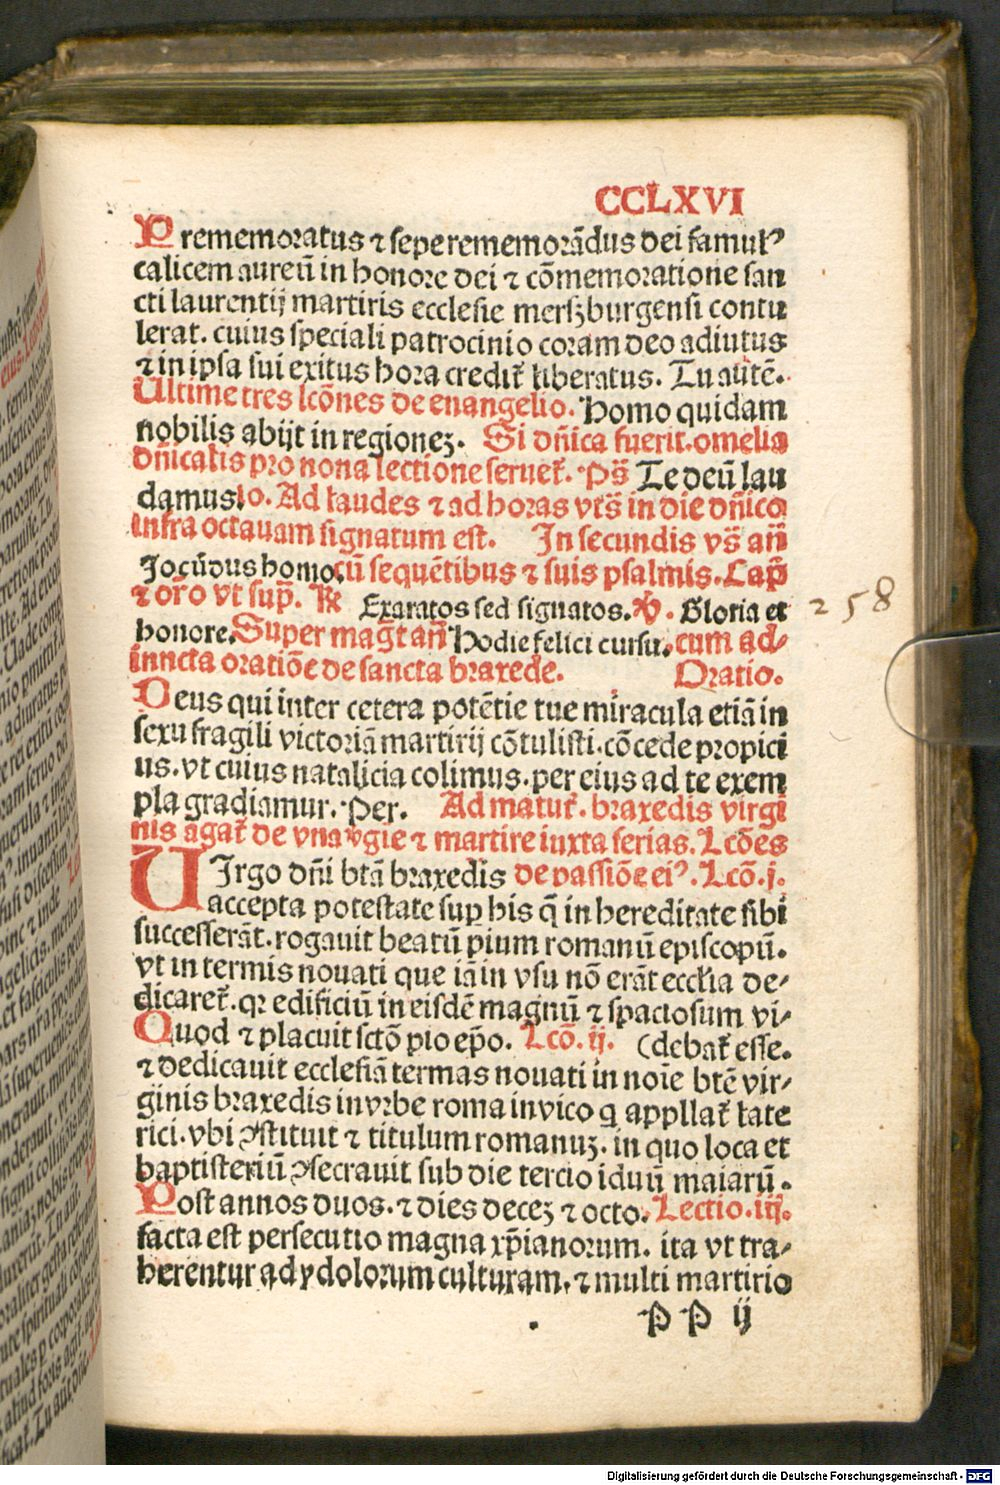 CCLXVI
Prememoratus ⁊ sepe rememorādus dei famulꝰ
calicem aureū in honore dei ⁊ cōmemoratione san
cti laurentij martiris ecclesie merszburgensi contu
lerat. cuius speciali patrocinio coram deo adiutus
⁊ in ipsa sui exitus hora credit᷑ liberatus. Tu aūtē.
Ultime tres lcōnes de euangelio. Homo quidam
nobilis abijt in regionez. Si dn̄ica fuerit. omelia
dn̄icalis pro nona lectione seruet᷑. Ps̄ Te deū lau
damus. Ad laudes ⁊ ad horas vts̄ in die dn̄ico
infra octauam signatum est. In secundis vs̄ an̄
Jocūdus homo. cū sequētibus ⁊ suis psalmis. Cap̄
⁊ orō vt sup̄. ℞ Exaratos sed signatos. ℣. Gloria et
honore. Super maḡt an̄ Hodie felici cursu. cum ad⸗
iuncta oratiōe de sancta braxede. Oratio.
Deus qui inter cetera potētie tue miracula etiā in
sexu fragili victoriā martirij cōtulisti. cōcede propici
us. vt cuius natalicia colimus. per eius ad te exem
pla gradiamur. Per. Ad matut᷑. braxedis virgi
nis agat᷑ de vna v̄gie ⁊ martire iuxta ferias. Lcōes
VJrgo dn̄i btā braxedis de passiōe eiꝰ. Lcō. j.
accepta potestate sup his q̄ in hereditate sibi
successerāt. rogauit beatū pium romanū episcopū.
vt in termis nouati que iā in vsu nō erāt ecclīa de⸗
dicaret᷑. qꝛ edificiū in eisdē magnū ⁊ spaciosum vi⸗
Quod ⁊ placuit sctō pio ep̄o. Lcō. ij. (debat᷑ esse.
⁊ dedicauit ecclesiā termas nouati in noīe btē vir⸗
ginis braxedis in vrbe roma in vico q appllat᷑ late
rici. vbi ꝯstituit ⁊ titulum romanuz. in quo loca et
baptisteriū ꝯsecrauit sub die tercio iduū maiarū.
Post annos duos. ⁊ dies decez ⁊ octo. Lectio. iij.
facta est persecutio magna xp̄ianorum. ita vt tra⸗
herentur ad ydolorum culturam. ⁊ multi martirio
P P ij
258
Digitalisierung gefördert durch die Deutsche Forschungsgemeinschaft - DFG